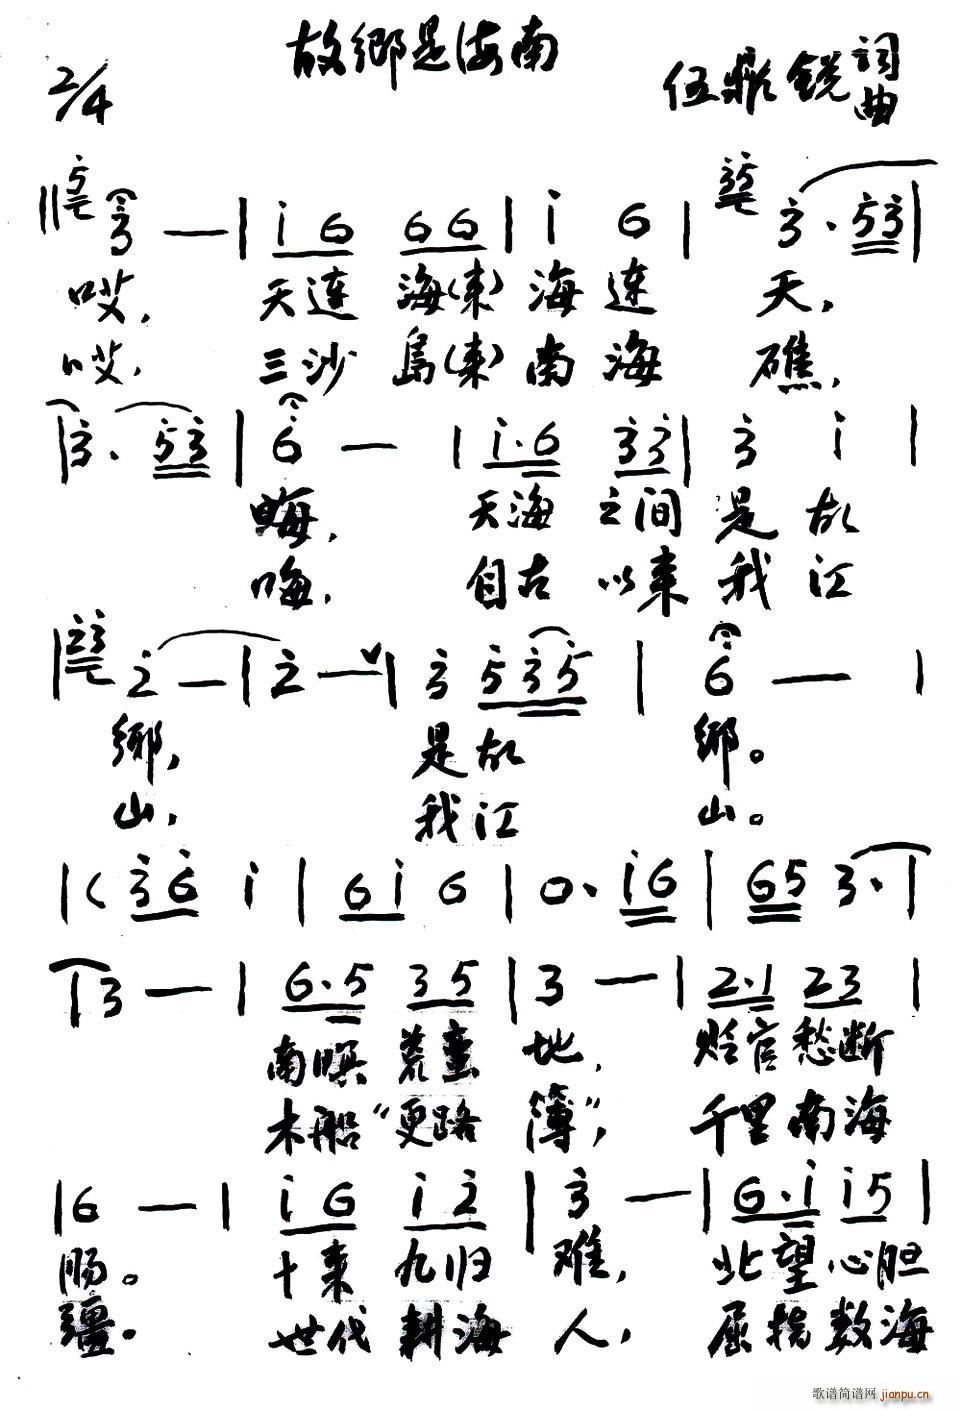 故鄉是海南
2/4
伍鼎銳 詞
曲
5 3 — | i 6 6 6 | i 6 | 3 5 3 · 5 3 |
哎, 天连 海(来)海 连 天,
哎, 三沙 島(来)南 海 礁,
| 3 · 5 3 | 6 — | i · 6 3 3 | 3 i |
晦, 天海 之间 是 故
晦, 自古 以来 我 江
| 2 3 2 — | 2 — ∨ | 3 5 3 5 | 6 — |
鄉, 是故 鄉。
山, 我江 山。
| ( 3 6 i | 6 i 6 | 0 · i 6 | 6 5 3 · |
| 3 — | 6 · 5 3 5 | 3 — | 2 · 1 2 3 |
南暝 荒蛮 地, 贬官 愁断
木船 "更路 簿", 千里 南海
| 6 — | i 6 i 2 | 3 — | 6 · i i 5 |
肠。 十来 九归 难, 北望 心胆
疆。 世代 耕海 人, 屈指 数海
歌谱简谱网 jianpu.cn